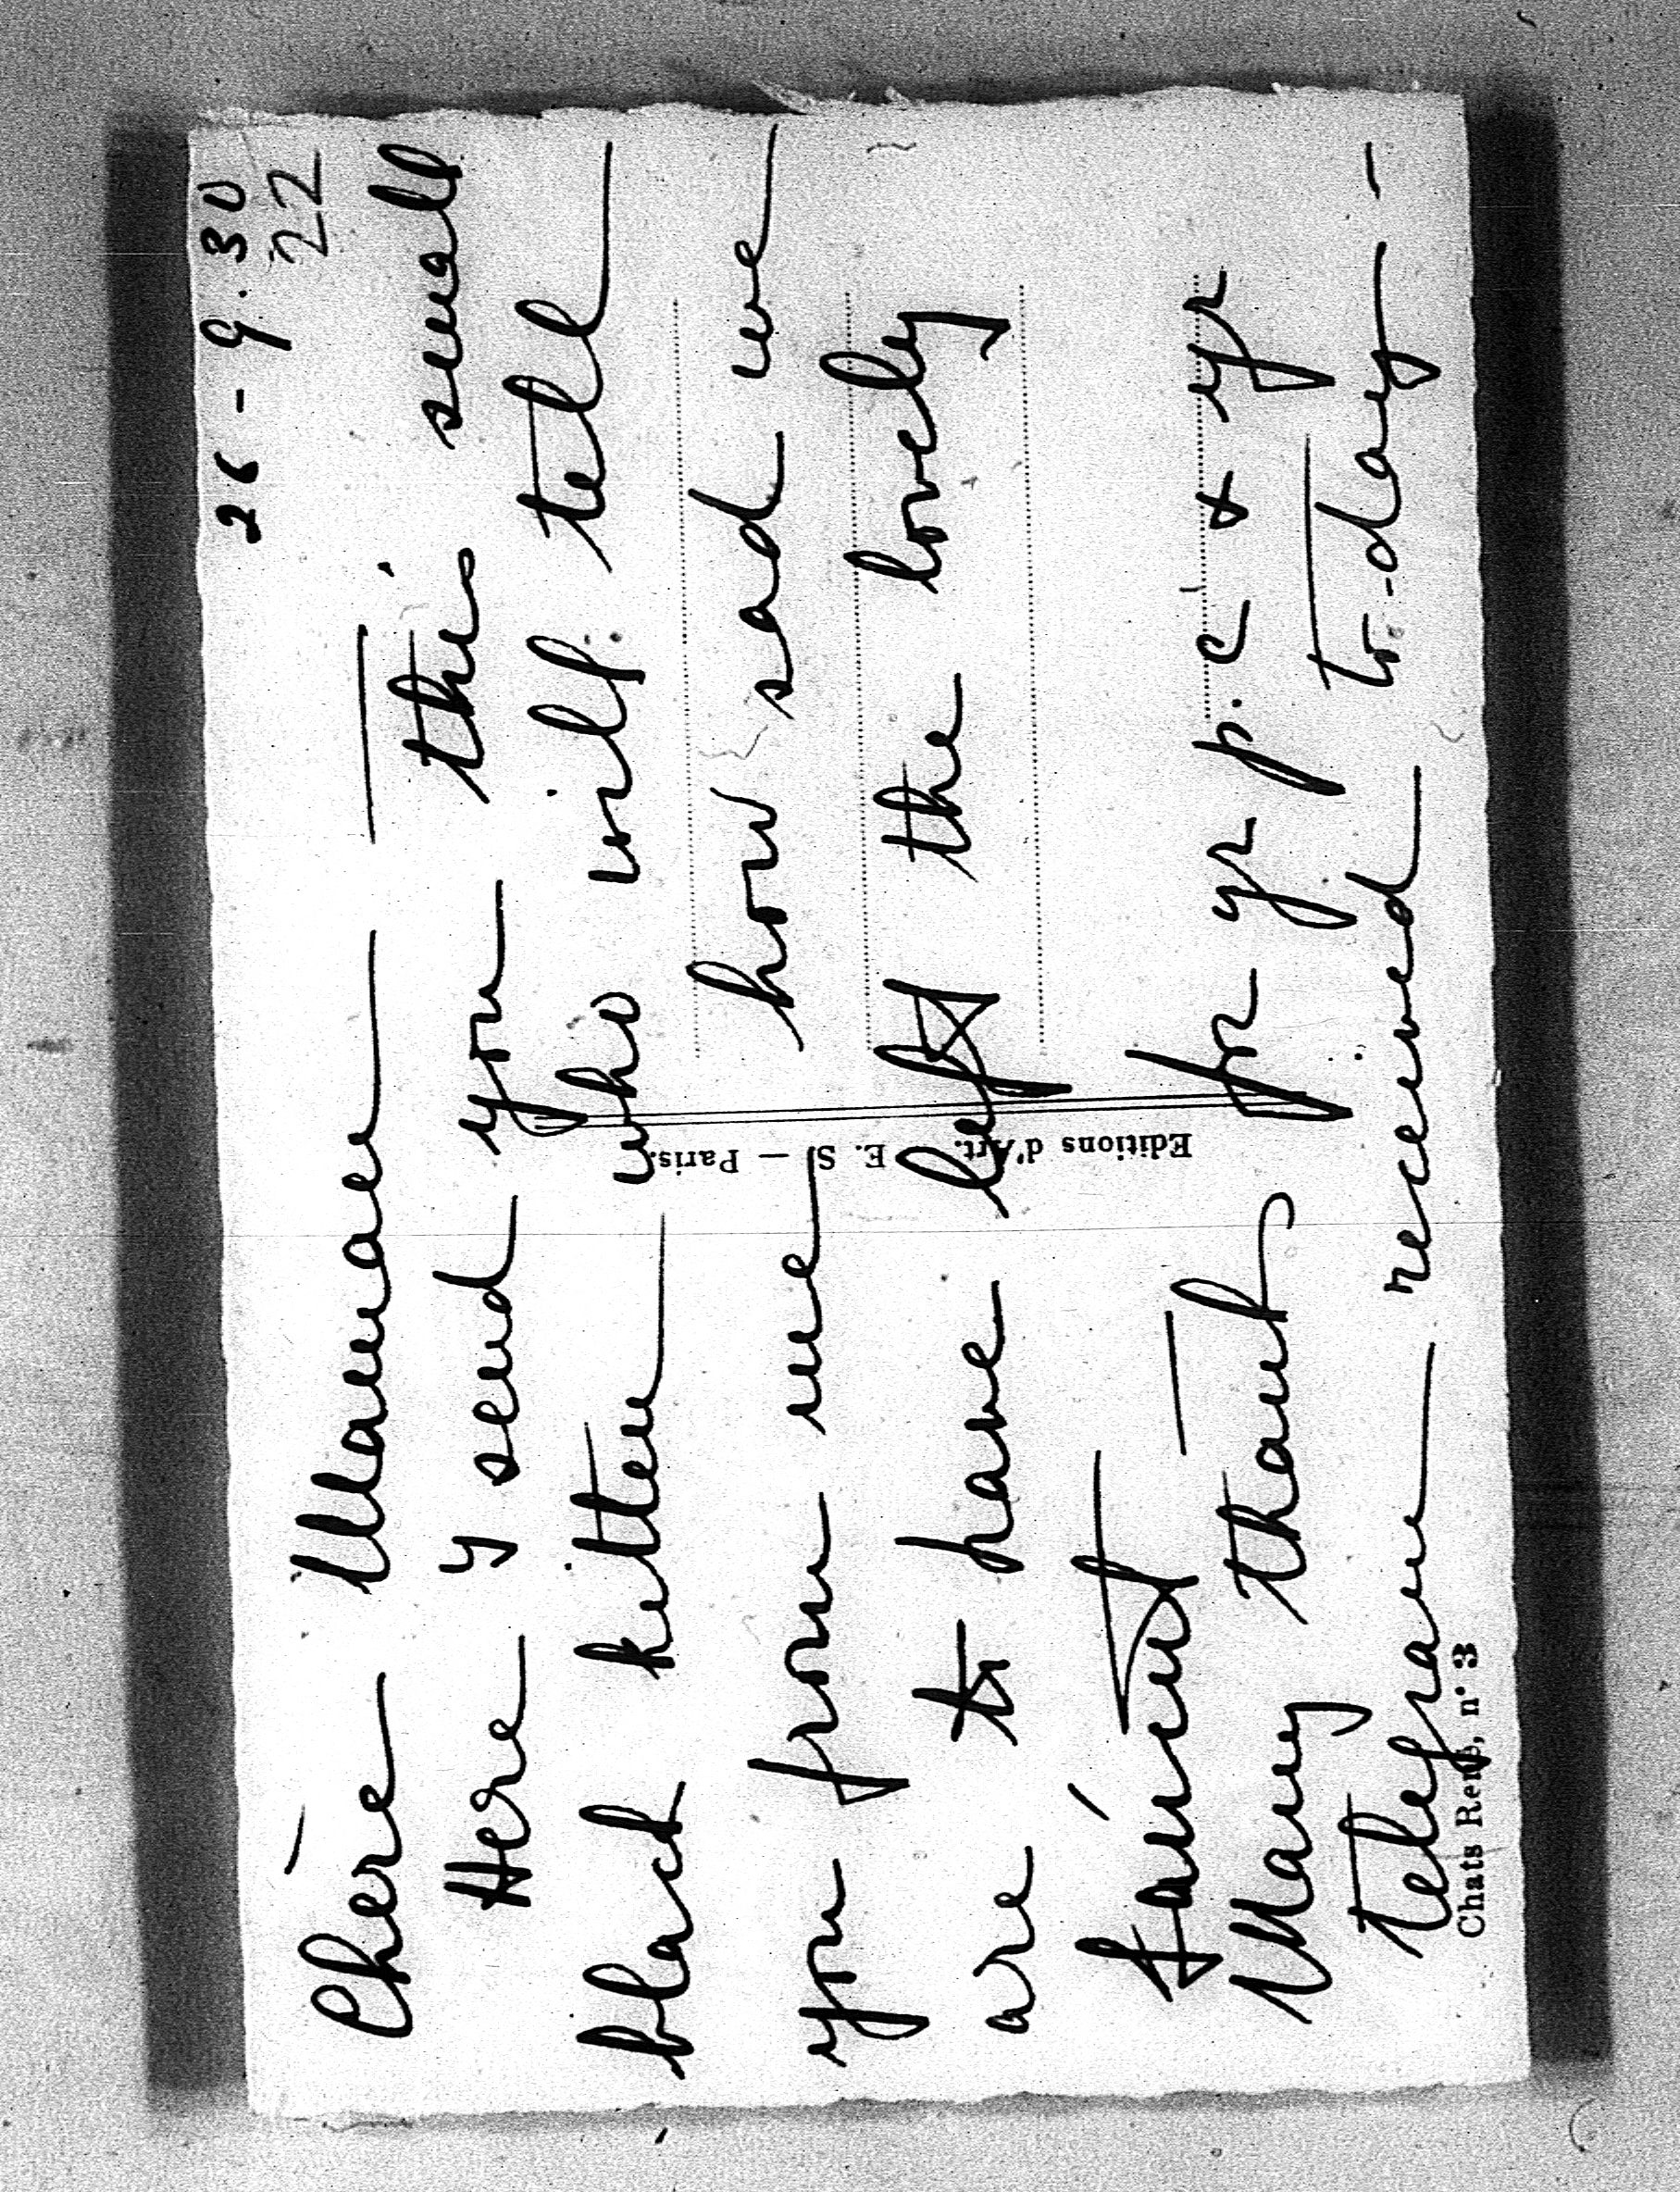 26-9.30
22
Chère Maman —
Here I send you this small
black kitten who will tell
you from me how sad we
are to have left the lovely
Łańcut —
Many thanks for yr p.c & yr
telegram received to-day -
Editions d'Art. E. S — Paris.
Chats René, n° 3